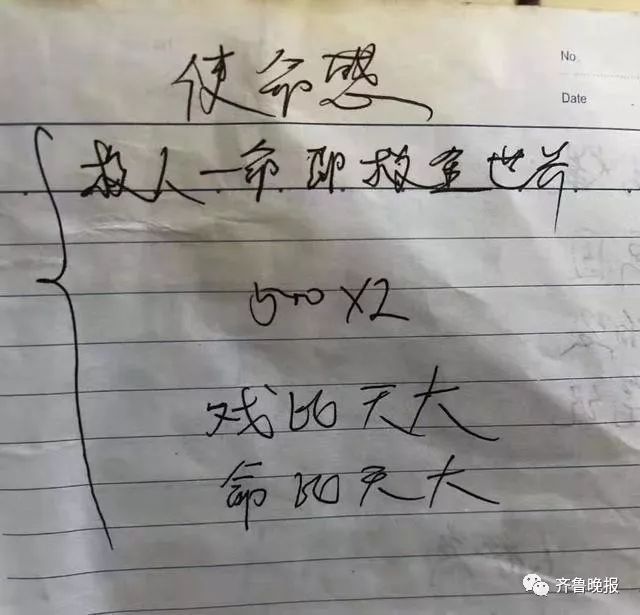 No
Date
使命感
救人一命即救全世界
500X2
戏比天大
命比天大
齐鲁晚报